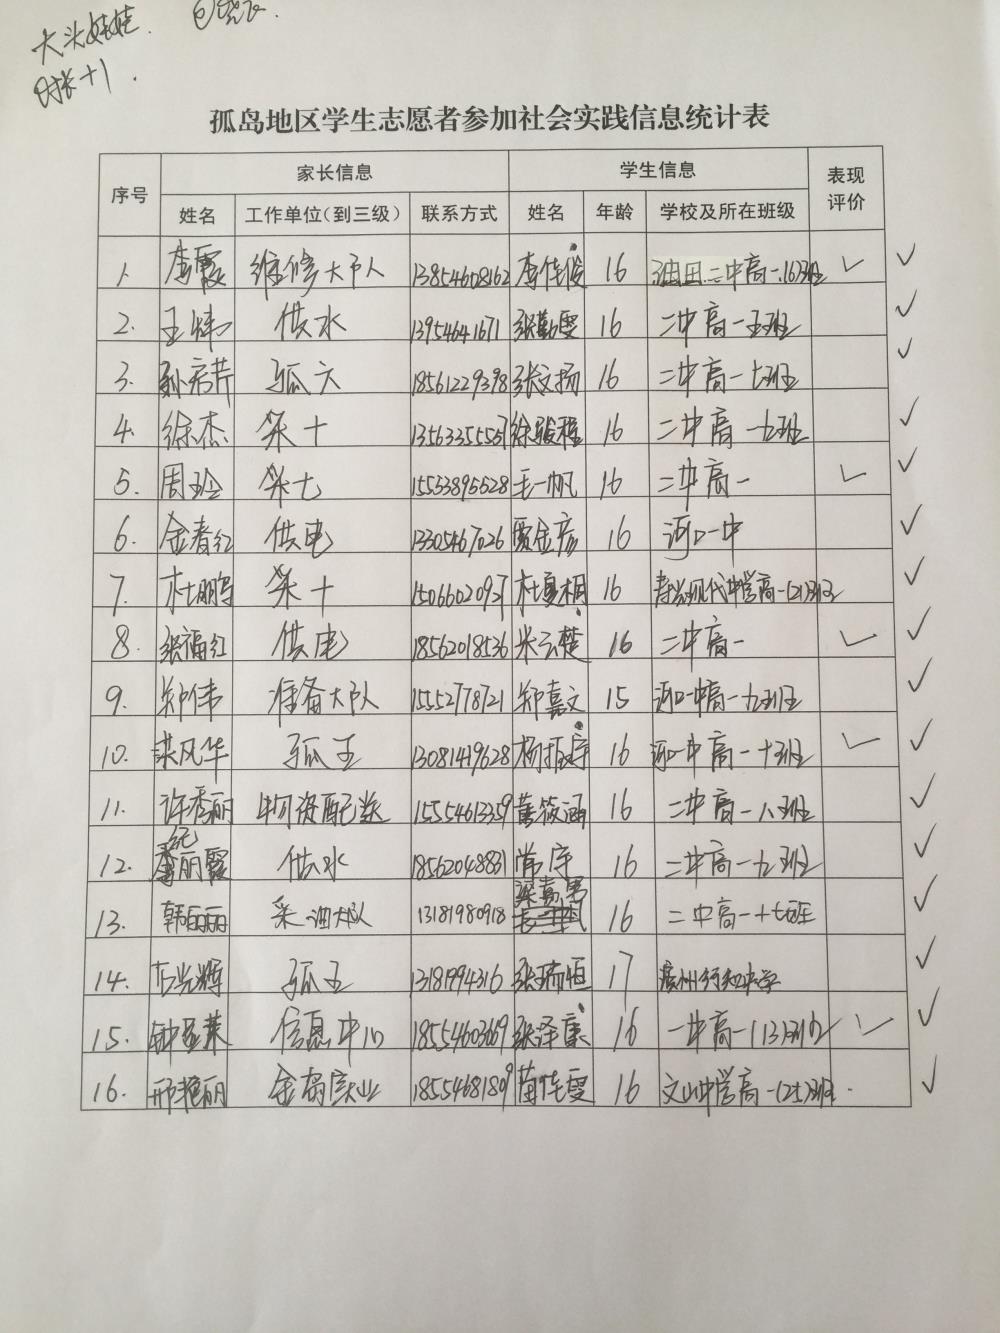 大头娃娃.
时长+1.
孤岛地区学生志愿者参加社会实践信息统计表
序号 家长信息 学生信息 表现评价
姓名 工作单位(到三级) 联系方式 姓名 年龄 学校及所在班级
1. 李霞 维修大队 13854608162 李佳俊 16 油田二中高一.16班 ✓ ✓
2. 王炜 供水 13954641671 张勤雯 16 二中高一五班 ✓
3. 孙府芹 孤六 18561229398 张文扬 16 二中高一七班 ✓
4. 徐杰 采十 13563355537 徐骏程 16 二中高一九班 ✓
5. 周玲 采七 15553895528 毛一帆 16 二中高一 ✓ ✓
6. 金春红 供电 13305467026 贾金彦 16 河口一中 ✓
7. 杜鹏 采十 15066020927 杜夏桐 16 现代中学高一(21)班 ✓
8. 张福红 供电 18562018536 米云楚 16 二中高一 ✓ ✓
9. 郑伟 准备大队 15552778721 郑嘉文 15 河口一中高一九班 ✓
10. 洪风华 孤五 13081419628 杨 16 河口一中高一十班 ✓ ✓
11. 许秀丽 物资配送 15554613359 筱涵 16 二中高一八班 ✓
12. 纪丽霞 供水 18562048831 常宇 16 二中高一九班 ✓
13. 韩丽丽 采油大队 13181980918 梁嘉男 16 二中高一十七班 ✓
14. 石光辉 孤五 13181994316 张瑞恒 17 滨州行知中学 ✓
15. 钟亚莱 信息中心 18554603669 张泽康 16 一中高一(13)班 ✓ ✓
16. 邢艳丽 金岛实业 18554681809 苗佳雯 16 文山中学高一(25)班. ✓